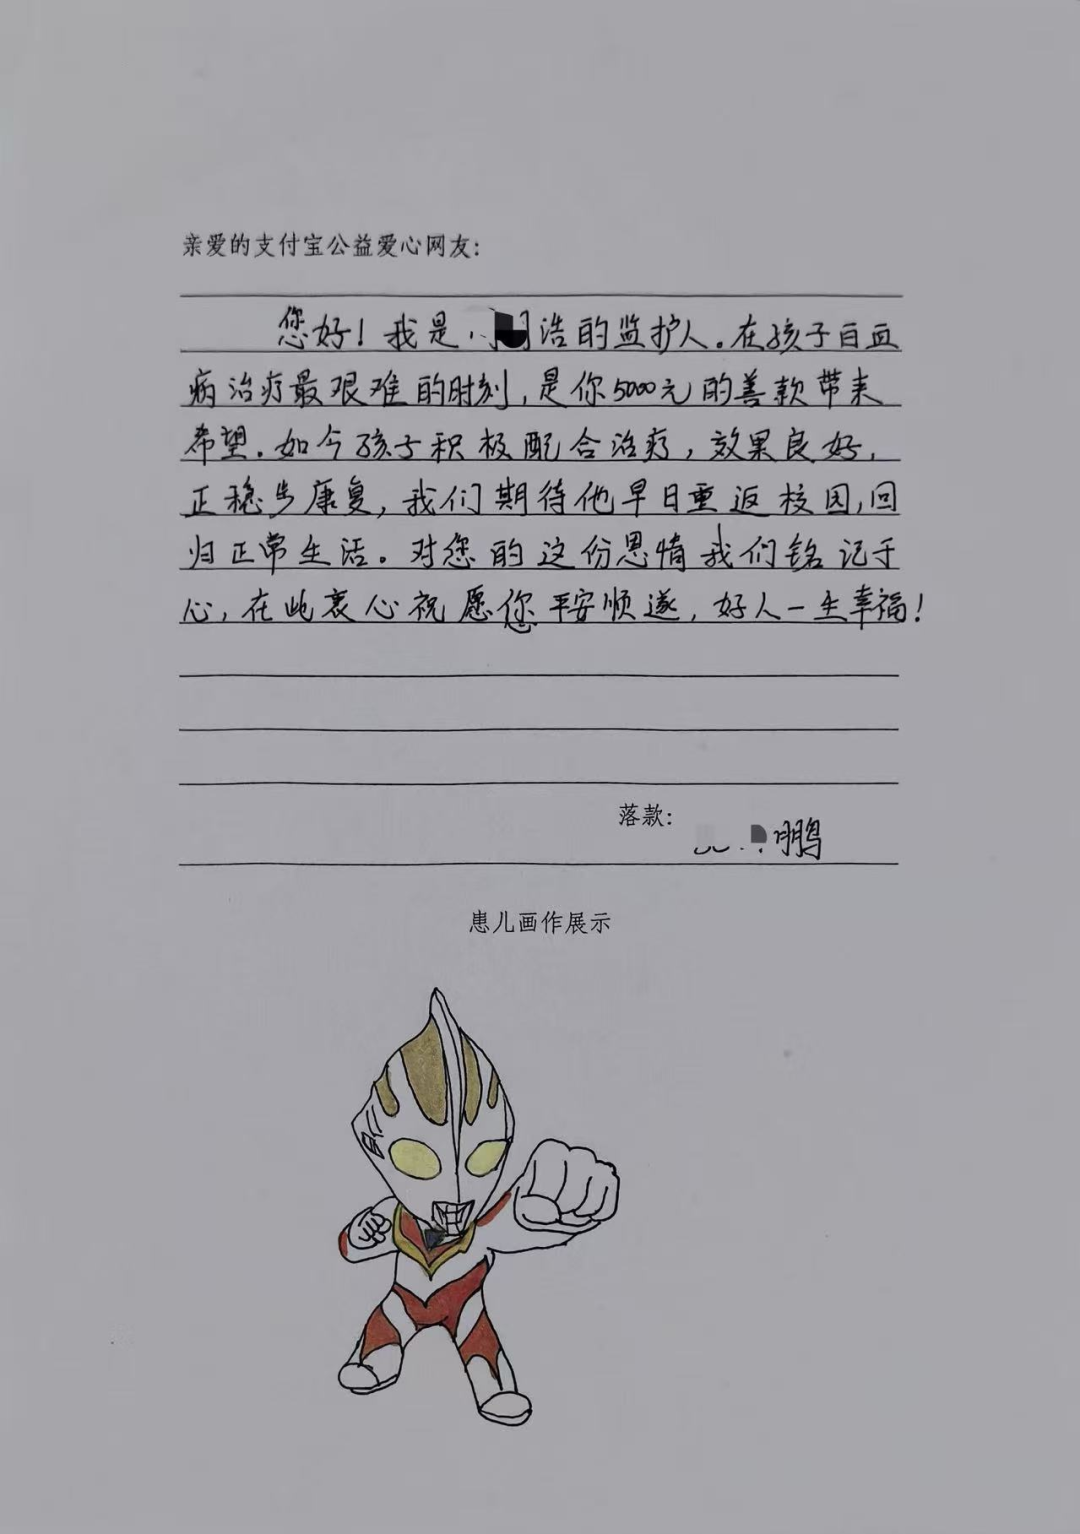 亲爱的支付宝公益爱心网友:
您好！我是浩的监护人。在孩子白血
病治疗最艰难的时刻,是你5000元的善款带来
希望。如今孩子积极配合治疗,效果良好,
正稳步康复,我们期待他早日重返校园,回
归正常生活。对您的这份恩情我们铭记于
心,在此衷心祝愿您平安顺遂,好人一生幸福!
落款:
鹏
患儿画作展示